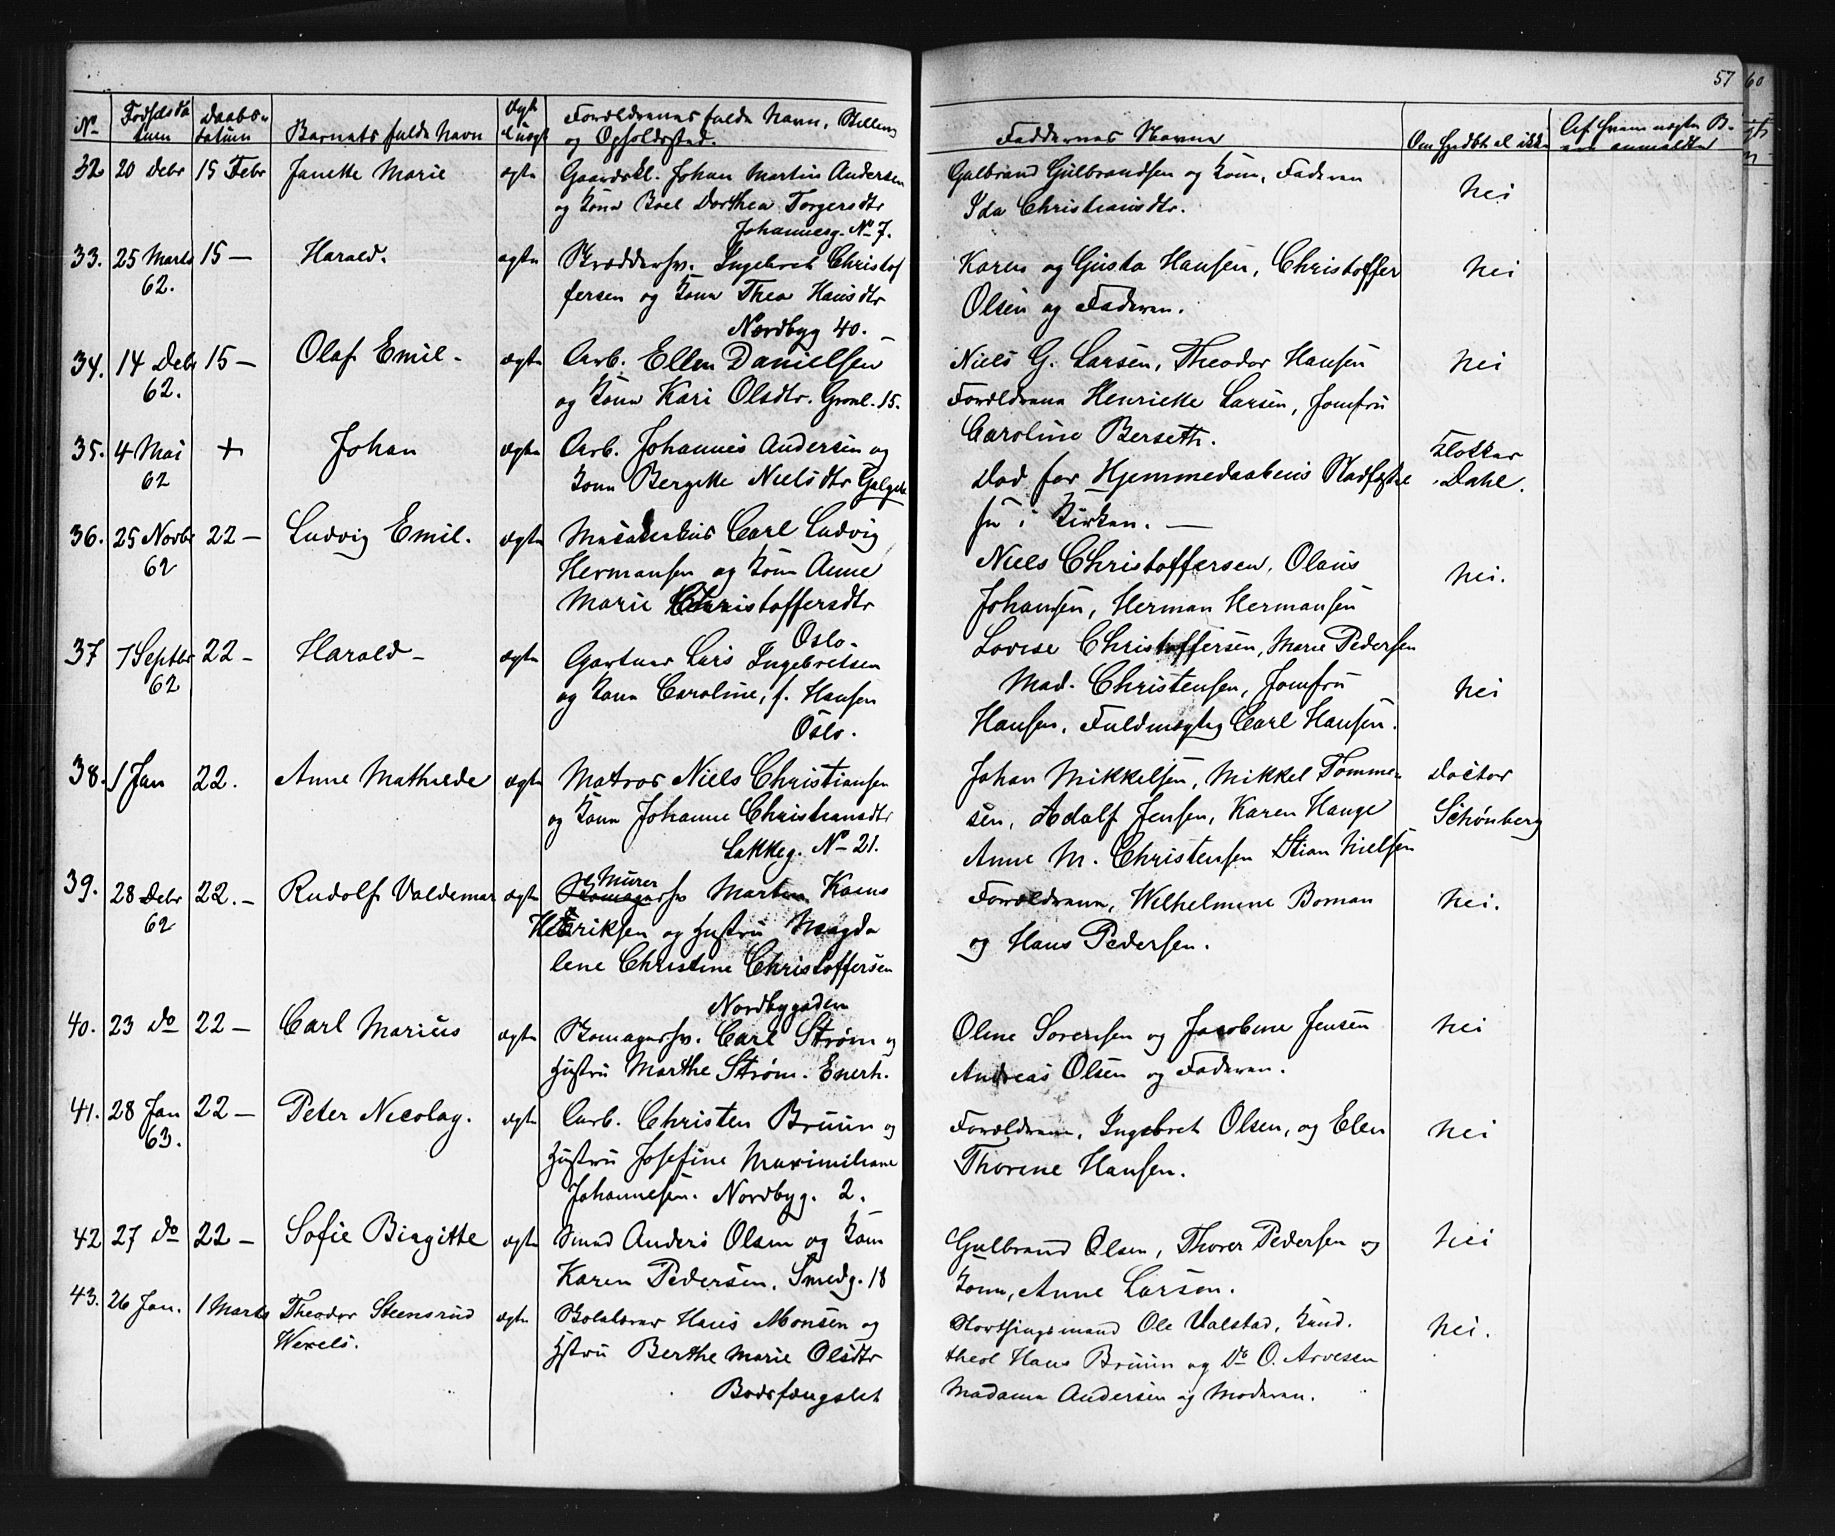 57 60
No Fødselsda Daabs- Barnets fulde Navn Ægt Forældrenes fulde Navn, Stilling Faddernes Navne Om hjdbt el ikke Af hvem uægte B.
tum datum el uægt og Opholdssted. ere anmeldte
32 20 Debr 15 Febr Janette Marie ægte Gaardskl. Johan Martin Andersen Gulbrand Gulbrandsen og Kone, Faderen Nei
og Kone Boel Dorthea Torgersdtr Ida Christiansdtr.
Johannesg. No 7.
33. 25 Marts 15 — Harald. ægte Skræddersv. Ingebret Christof Karen og Gusta Hansen, Christoffer Nei
62. fersen og Kone Thea Hansdtr Olsen og Faderen.
Nordbyg 40.
34. 14 Debr 15 — Olaf Emil. ægte Arb. Ellen Danielsen Niels G. Larsen, Theodor Hansen Nei
62. og Kone Kari Olsdtr. Grønl. 15. Forældrene Henriette Larsen, Jomfru
Caroline Berseth.
35. 4 Mai + Johan ægte Arb. Johannes Andersen og Død før Hjemmedaabens Stadfæstel Klokker
62 Kone Bergitte Nielsdtr Galgeb se i Kirken. — Dahl.
36. 25 Novbr 22 — Ludvig Emil. ægte Carl Ludvig Niels Christoffersen, Olaus Nei.
62 Hermansen og Kone Anne Johansen, Herman Hermansen
Marie Christoffersdtr Lovise Christoffersen, Marie Pedersen
Oslo.
37 7 Septbr 22 — Harald — ægte Gartner Lars Ingebretsen Mad. Christensen, Jomfru Nei
62 og Kone Caroline, f. Hansen Hansen, Fuldmægtig Carl Hansen.
Oslo.
38. 1 Jan 22. Anne Mathilde ægte Matros Niels Christiansen Johan Mikkelsen, Mikkel Tomme- Doctor
og Kone Johanne Christiansdtr sen, Adolf Jensen, Karen Hauge Schønberg
Lakkeg. No 21. Anne M. Christensen Stian Nielsen
39. 28 Debr 22. — Rudolf Valdemar ægte Murer Forældrene, Wilhelmine Boman Nei.
62 Skomagersv Morten og Hans Pedersen.
Henriksen og Hustru Magda
lene Christine Christoffersen
Nordbygaden
40. 23 Do 22 — Carl Marius ægte Skomagersv. Carl Strøm og Oline Sorensen og Jacobine Jensen Nei
Hustru Marthe Strøm. Enerh. Andreas Olsen og Faderen.
41. 28 Jan 22 — Peter Nicolay. ægte Arb. Christen Bruun og Forældrene, Ingebret Olsen, og Elen Nei
63. Hustru Josefine Maximiliane Thorine Hansen.
Johannesen. Nordbyg. 2.
42 27 Do 22 — Sofie Birgitte ægte Smed Anders Olsen og Kone Gulbrand Olsen, Thorer Pedersen og Nei
Karen Pedersen. Smedg. 18 Kone, Anne Larsen.
43. 26 Jan. 1 Marts Theodor Steensrud ægte Skolelærer Hans Monsen og Storthingsmand Ole Valstad, Kand. Nei.
Wexels. Hustru Berthe Marie Olsdtr theol Hans Bruun og Do O. Arvesen
Bodsfængslet Madame Andersen og Moderen.